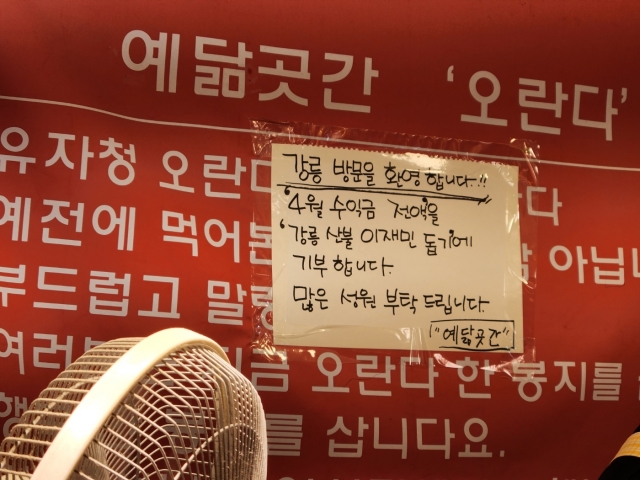 예닮곳간 '오란다'
유자청 오란 다
예전에 먹어본 아닙니
부드럽고 말
여러 금 오란다 한 봉지를
를 삽니다요.
강릉 방문을 환영합니다.!!
'4월 수익금 전액을
'강릉 산불 이재민 돕기'에
기부 합니다.
많은 성원 부탁 드립니다.
"예닮곳간"